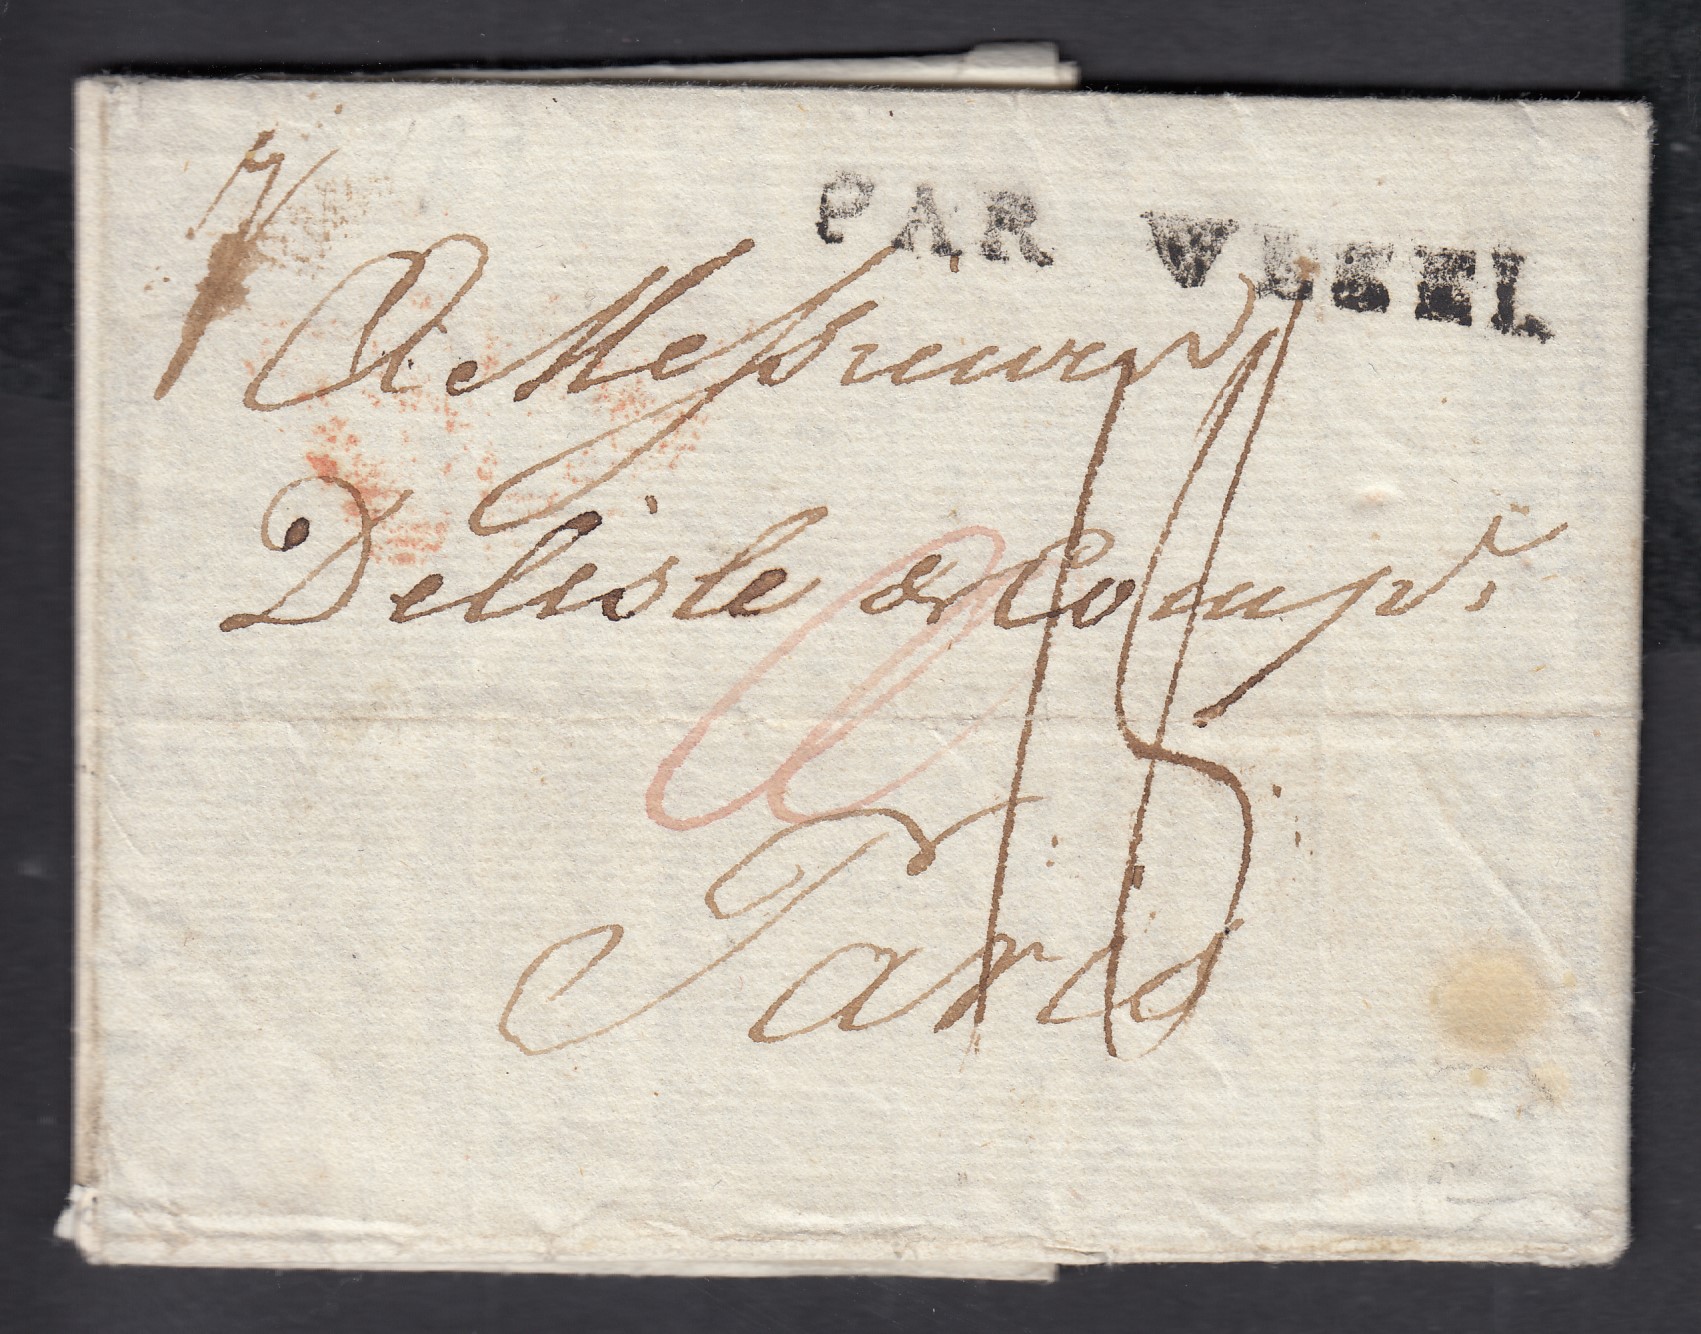 PAR WESEL
A Messieurs
Delisle & Comp.
Paris